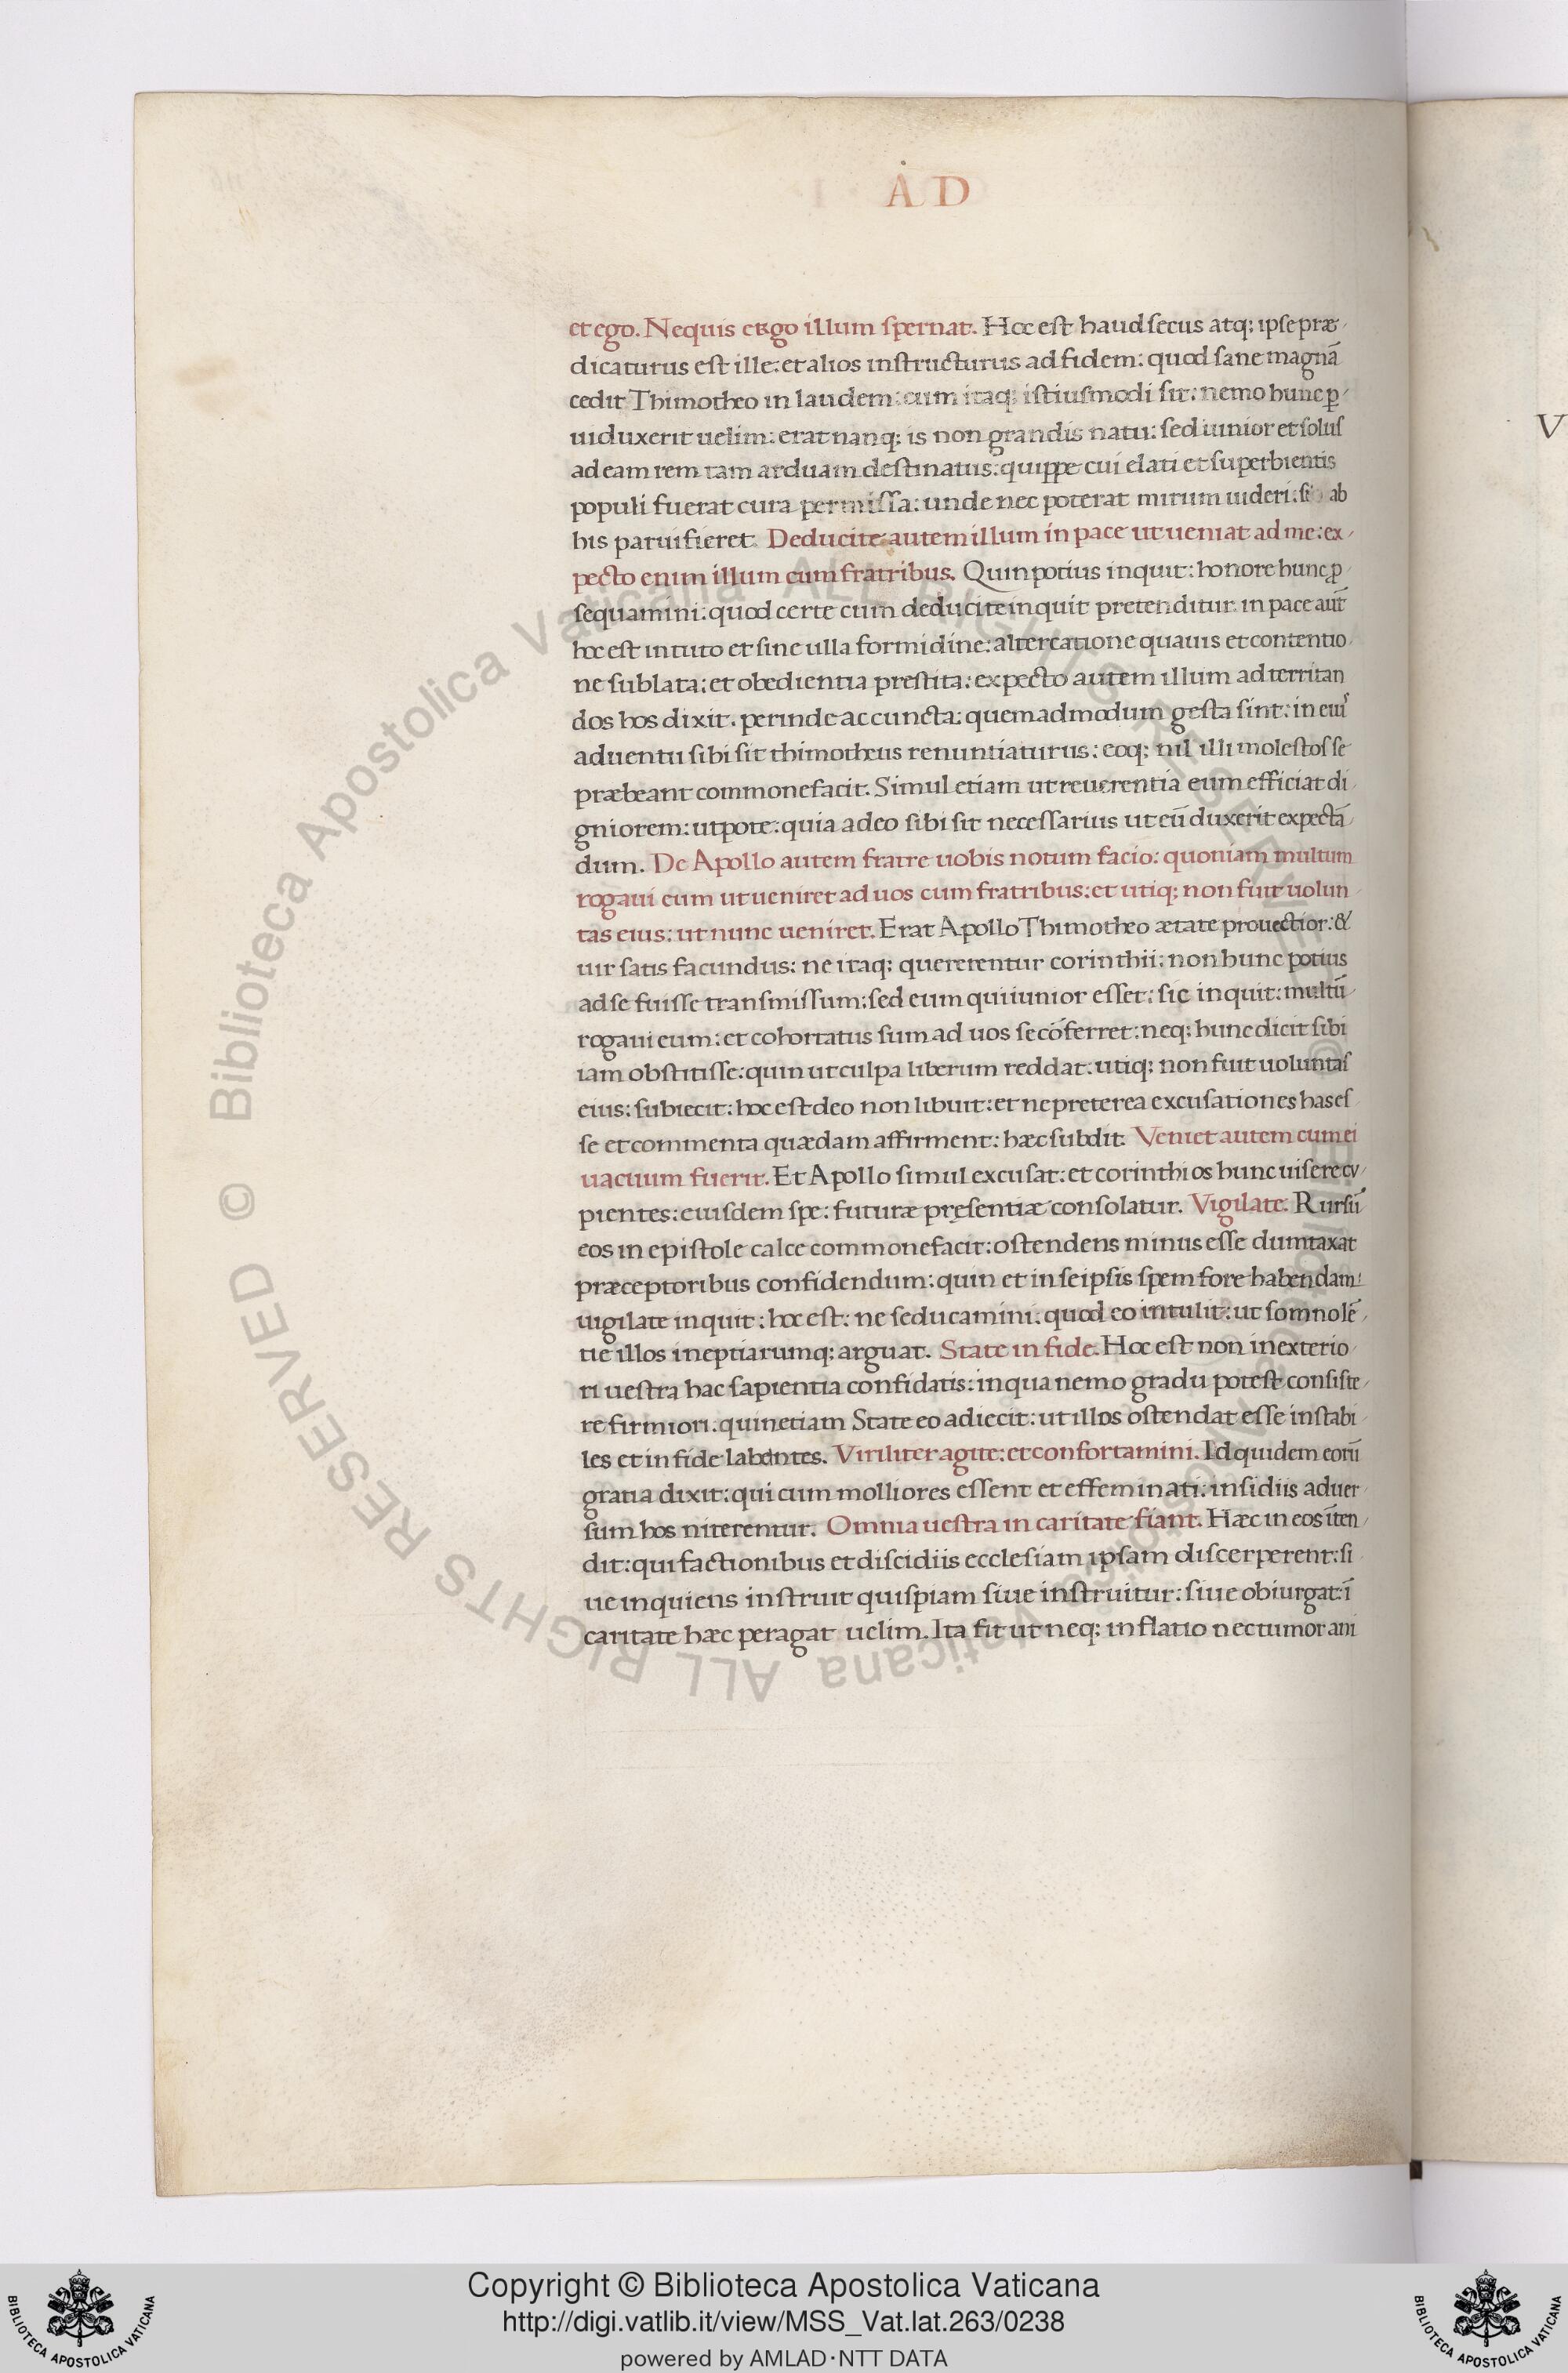 AD
et ego. Nequis ergo illum spernat. Hoc est haud secus atq; ipse præ-
dicaturus est ille: et alios instructurus ad fidem: quod sane magnã
cedit Thimotheo in laudem: cum itaq; istiusmodi sit: nemo hunc ꝑ-
uiduxerit uelim: erat nanq; is non grandis natu: sed iunior et solus
ad eam rem tam arduam destinatus: quippe cui elati et superbientis
populi fuerat cura permissa: unde nec poterat mirum uideri: si ab
his paruifieret. Deducite autem illum in pace ut ueniat ad me: ex-
pecto enim illum cum fratribus. Quin potius inquit: honore hunc ꝓ-
sequamini: quod certe cum deducite inquit pretenditur. in pace aut̃
hoc est in tuto et sine ulla formidine: altercatione quauis et contentio-
ne sublata: et obedientia prestita: expecto autem illum ad territan
dos hos dixit. perinde ac cuncta: quemadmodum gesta sint: in eius
aduentu sibi sit thimotheus renuntiaturus: eoq; nil illi molestos se
præbeant commonefacit. Simul etiam ut reuerentia eum efficiat di-
gniorem: utpote: quia adeo sibi sit necessarius ut eũ duxerit expectã-
dum. De Apollo autem fratre uobis notum facio: quoniam multum
rogaui eum ut ueniret ad uos cum fratribus: et utiq; non fuit uolun-
tas eius: ut nunc ueniret. Erat Apollo Thimotheo ætate prouectior: &
uir satis facundus: ne itaq; quererentur corinthii: non hunc potius
ad se fuisse transmissum: sed eum qui iunior esset: sic inquit: multũ-
rogaui eum: et cohortatus sum ad uos se cõferret: neq; hunc dicit sibi
iam obstitisse: quin ut culpa liberum reddat: utiq; non fuit uoluntas
eius: subiecit: hoc est deo non libuit: et ne preterea excusationes has es-
se et commenta quædam affirment: hæc subdit. Veniet autem cum ei
uacuum fuerit. Et Apollo simul excusat: et corinthios hunc uisere cu-
pientes: eiusdem spe: futuræ pręsentiæ consolatur. Vigilate. Rursũ
eos in epistole calce commonefacit: ostendens minus esse dumtaxat
præceptoribus confidendum: quin et in seipsis spem fore habendam:
uigilate inquit: hoc est: ne seducamini: quod eo intulit: ut somnolẽ-
tie illos ineptiarumq; arguat. State in fide. Hoc est non in exterio-
ri uestra hac sapientia confidatis: in qua nemo gradu potest consiste-
re firmiori: quin etiam State eo adiecit: ut illos ostendat esse instabi-
les et in fide labentes. Viriliter agite: et confortamini. Id quidem eorũ
gratia dixit: qui cum molliores essent et effeminati: insidiis aduer-
sum hos niterentur. Omnia uestra in caritate fiant. Hæc in eos ĩten-
dit: qui factionibus et discidiis ecclesiam ipsam discerperent: si-
ue inquiens instruit quispiam siue instruitur: siue obiurgat: ĩ
caritate hæc peragat uelim. Ita fit ut neq; inflatio nec tumor ani
V
© Biblioteca Apostolica Vaticana ALL RIGHTS RESERVED
© Biblioteca Apostolica Vaticana ALL RIGHTS RESERVED
Copyright © Biblioteca Apostolica Vaticana
http://digi.vatlib.it/view/MSS_Vat.lat.263/0238
powered by AMLAD·NTT DATA
BIBLIOTECA APOSTOLICA VATICANA
BIBLIOTECA APOSTOLICA VATICANA